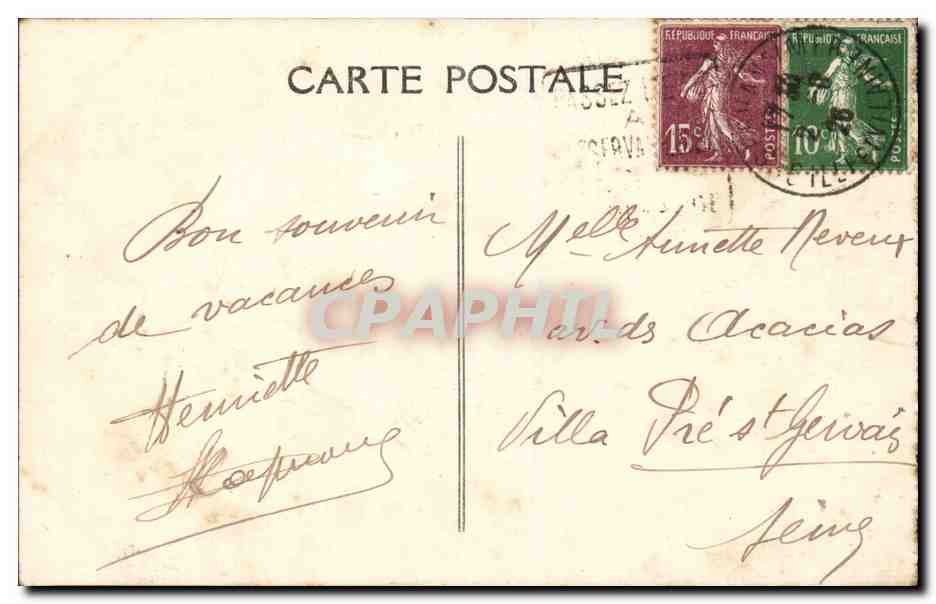 CARTE POSTALE
RÉPUBLIQUE FRANÇAISE
15c
POSTES
RÉPUBLIQUE FRANÇAISE
10c
POSTES
Bon souvenir
de vacances
Henriette
Melle Annette Neveux
av. ds Acacias
Villa Pré St Gervais
Seine
CPAPHIL